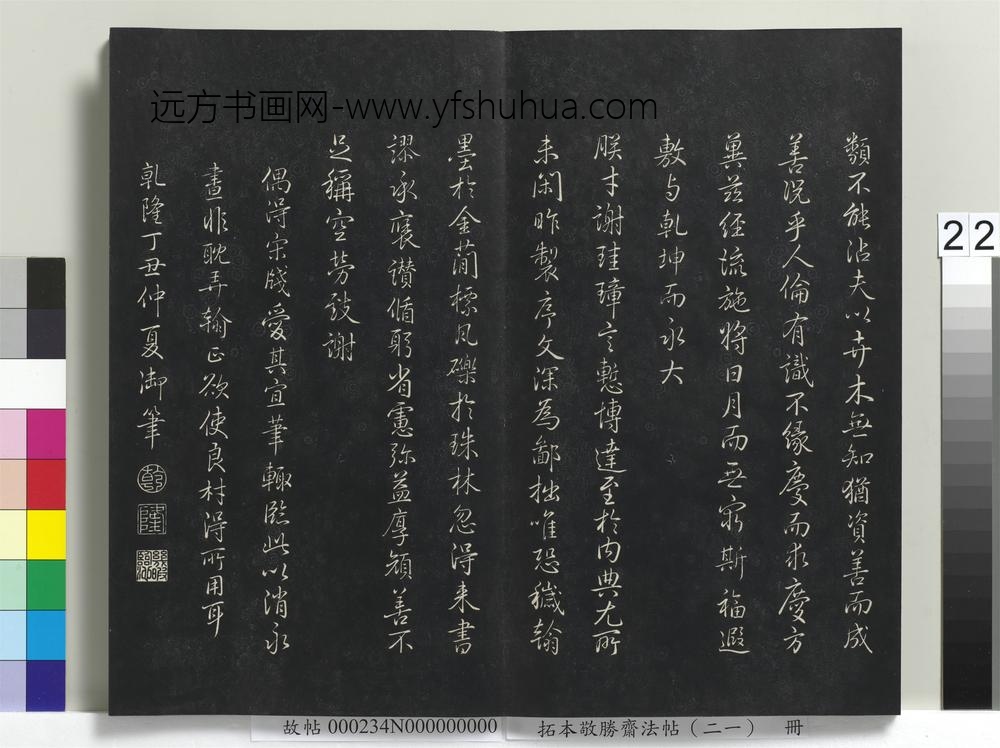 远方书画网-www.yfshuhua.com
類不能沾夫以卉木無知猶資善而成
善況乎人倫有識不緣慶而求慶方
冀茲經流施將日月而無窮斯福遐
敷与乾坤而永大
朕才謝珪璋言慙博達至於内典尤所
未閑昨製序文深為鄙拙唯恐穢翰
墨於金簡標瓦礫於珠林忽得来書
謬承褒讃循躬省慮弥益厚顔善不
足稱空勞致謝
偶得宋牋愛其宜筆輙臨此以消永
晝非耽弄翰正欲使良材得所用耳
乾隆丁丑仲夏御筆
乾
隆
22
故帖 000234N000000000
拓本敬勝齋法帖（二一） 冊